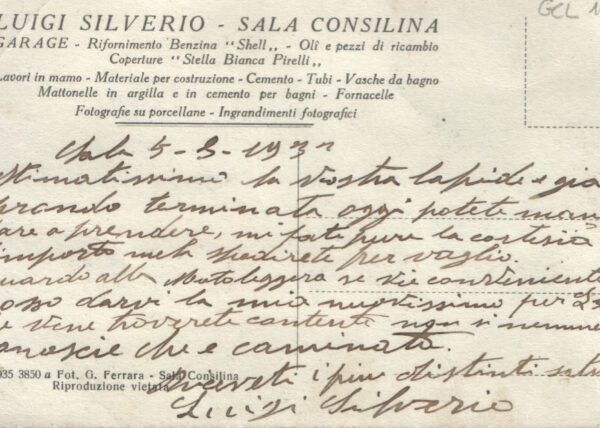 LUIGI SILVERIO - SALA CONSILINA
GARAGE - Rifornimento Benzina “Shell„ - Olî e pezzi di ricambio
Coperture “Stella Bianca Pirelli„
Lavori in mamo - Materiale per costruzione - Cemento - Tubi - Vasche da bagno
Mattonelle in argilla e in cemento per bagni - Fornacelle
Fotografie su porcellane - Ingrandimenti fotografici
GCL 1
Sala 5-3-193
stimatissimo la vostra lapide e gia
terminata oggi potete man
are a prendere, mi fate pure la cortesia
importo me la spedirete per vaglio.
guardo alla Motoleggera se vie conveniente
posso darvi la mia nuovissima per
e vene troverete contente non si nemmeno
conoscie che e caminato.
935 3850 a Fot. G. Ferrara - Sala Consilina
Riproduzione vietata
i piu distinti salu
Luigi Silverio